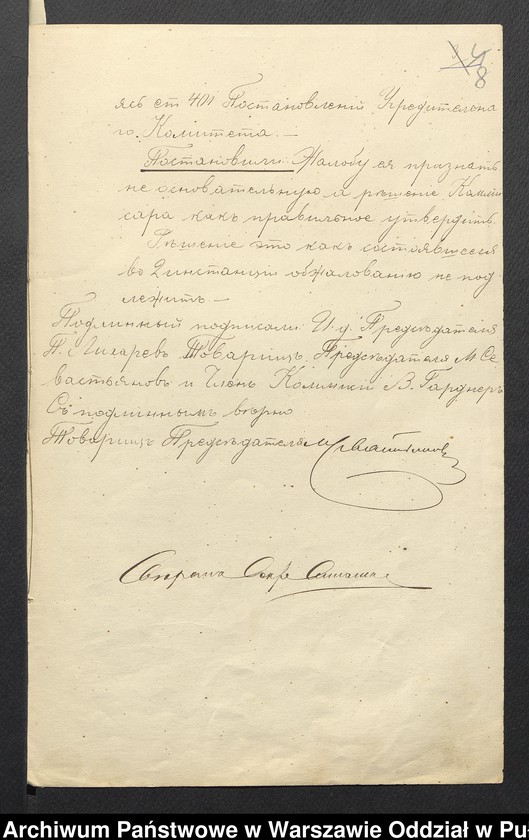 8
ясь ст 401 Постановленiй Учредительна
го Комитета. —
Постановили: Жалобу ея признать
не основательную а рѣшенiе Комми
сара какъ правильное утвердить.
Рѣшенiе это какъ состоявшееся
во 2 инстанцiи обжалованiю не под
лежитъ —
Подлинный подписали: И. д. Предсѣдателя
П. Лихаревъ Товарищъ Предсѣдателя М Се
вастьяновъ и Членъ Коммисiи В. Гарднеръ
Съ подлиннымъ вѣрно
Товарищъ Предсѣдателя М Севастьяновъ
Archiwum Państwowe w Warszawie Oddział w Pu